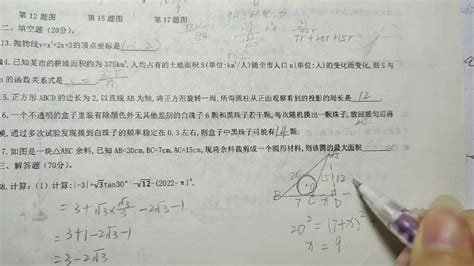 第12题图 第15题图 第17题图
二、填空题 (20分)。
13.抛物线y=x²+2x+3的顶点坐标是(-1,2)
14.已知某市的耕地面积约为375km²,人均占有的土地面积S(单位:km²/人)随全市人口n(单位:人)的变化而变化,则S与
n的函数关系式是
15.正方形ABCD的边长为2,以直线AB为轴,将正方形旋转一周,所得圆柱从正面观察看到的投影的周长是 12
16.一个不透明的盒子里装有除颜色外无其他差别的白珠子6颗和黑珠子若干颗,每次随机摸出一颗珠子,放回摇匀后再
摸,通过多次试验发现摸到白珠子的频率稳定在0.3左右,则盒子中黑珠子可能有14颗
17.如图是一块△ABC余料,已知AB=20cm,BC=7cm,AC=15cm,现将余料裁剪成一个圆形材料,则该圆的最大面积
三、解答题 (70分)。
18.计算:(1)-|-3|+√3tan30°-√12-(2022-π)⁰.
=3+√3×√3/3-2√3-1
=3+1-2√3-1
=3-2√3
A
20
15
12
B 7 C x D
20²=(7+x)²
x=9